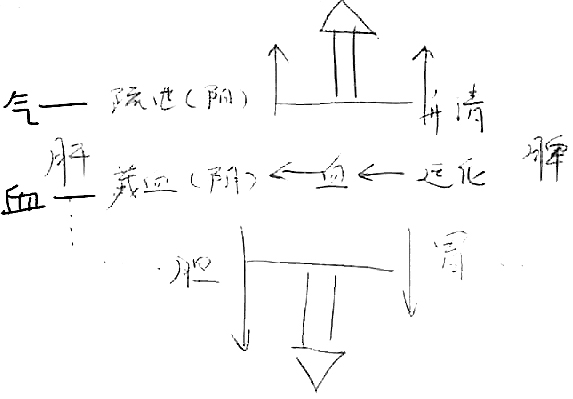 气— 疏泄(阳) 升清
肝
血— 藏血(阴) ← 血 ← 运化 脾
胆 胃